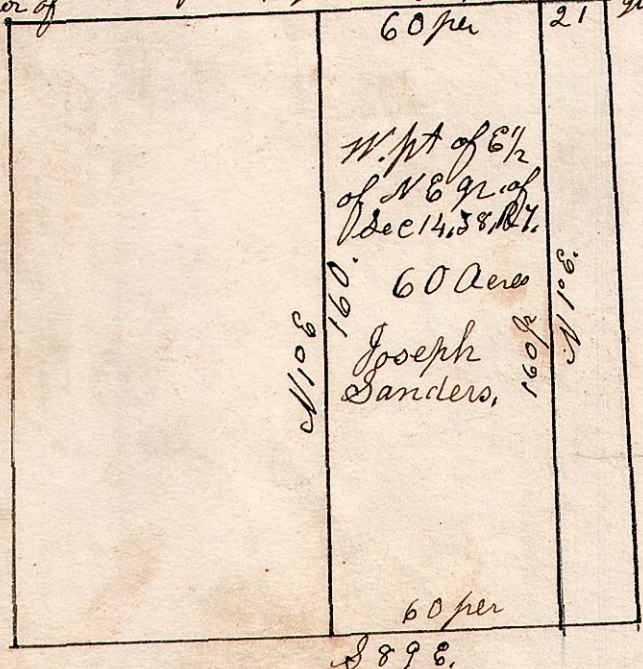 or of
60 per
21
W. pt of E 1/2
of N E qr. of
Sec 14, 38, R 7.
60 Acres
Joseph
Sanders.
N 1° E
160.
160 p
N 1° E.
60 per
S 89 E.